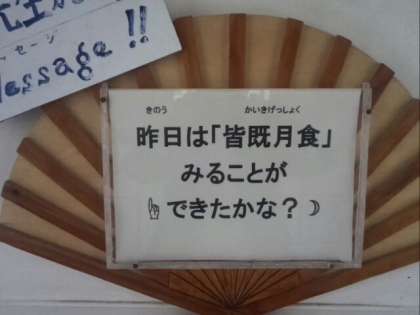 ッセージ
Message !!
きのう かいきげっしょく
昨日は「皆既月食」
みることが
☝できたかな?☽